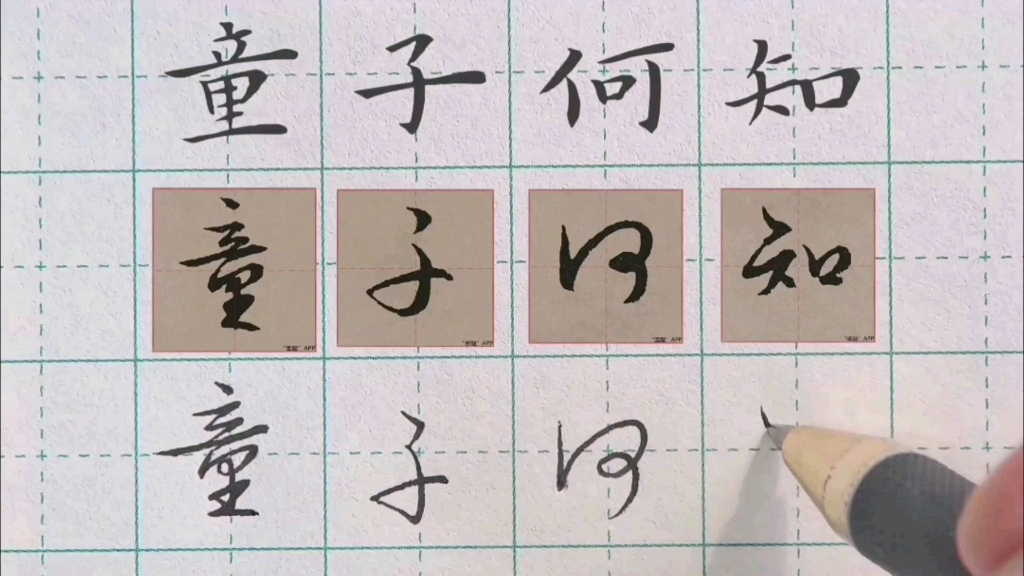 童子何知
童子何知
童子何